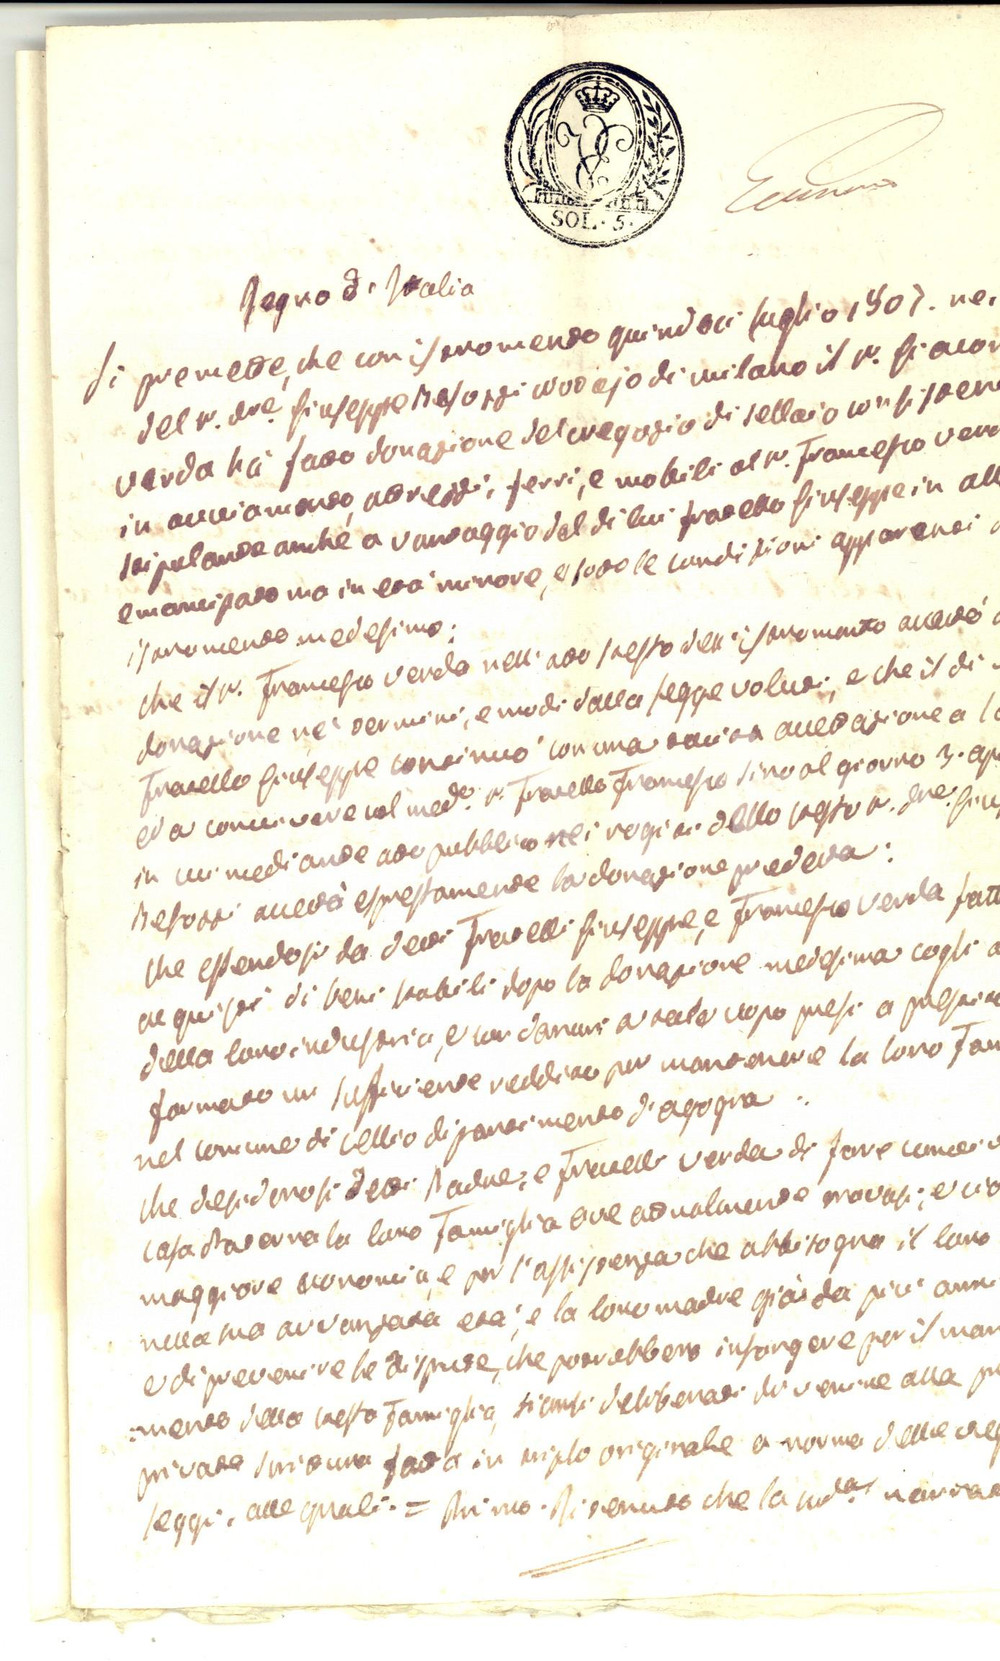 SOL. 5.
Regno di Italia
Si premette, che con istromento quindeci luglio 1807. nei
del r. dre. Giuseppe Besozzi notajo di milano il r. Giacom
verda hà fatto donazione del negozio di sellaio consistent
in acciamento, attrezzi, ferri, e mobili al r. Francesco verd
stipulante anche a vantaggio del di lui fratello Giuseppe in all
emancipato ma in età minore, e sotto le condizioni apparenti
istromento medesimo;
che il r. Francesco verda nell'atto stesso dell'istromento accettò
donazione ne' termini, e modi dalla legge voluti, e che il di
Fratello Giuseppe continuò con una tacita accettazione a
ed a convivere col medo. r. Fratello Francesco sino al giorno 3. ap
in cui mediante atto pubblico nei rogiti dello stesso r. dre. Giu
Besozzi accettò espressamente la donazione predetta;
che essendosi da detti Fratelli Giuseppe, e Francesco verda fatt
acquisti di beni stabili dopo la donazione medesima cogli a
della loro industria, e con danari a tale uopo presi a prestit
formato un sufficiente reddito per mantenere la loro Fam
nel comune di cellio dipartimento d'agogna
che desiderosi detti Padre, e Fratelli verda di fare
casa Paterna la loro Famiglia ove attualmente trovasi, e ciò
maggiore economia, e per l'assistenza che abbisogna il loro
nella sua avvanzata età, e la loro madre già da più anni
e di prevenire le dispute, che potrebbero insorgere per il man
mento della stessa Famiglia, si sono deliberati di venire alla pr
privata scrittura fatta in triplo originale a norma delle veg
leggi, alle quali. = Primo. Ritenuto che la sudta. narrat